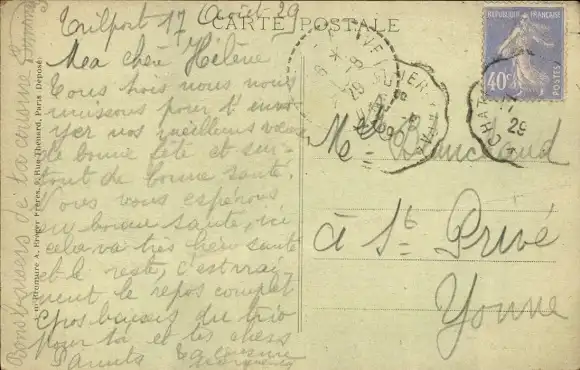 CARTE POSTALE
Trilport 17 Août 29
Ma chère Hélène
Tous trois nous nous
unissons pour t'envo
yer nos meilleurs vœux
de bonne fête et sur-
tout de bonne santé.
Nous vous espérons
en bonne santé, ici
cela va très bien santé
et le reste, c'est vrai-
ment le repos complet
gros baisers du trio
pour toi et les chers
parents ta cousine
Bons baisers de ta cousine
Phototypie A. Breger Frères, 9, Rue Thénard, Paris Déposé
REPUBLIQUE FRANÇAISE
40c
POSTES
29
à St Privé
Yonne